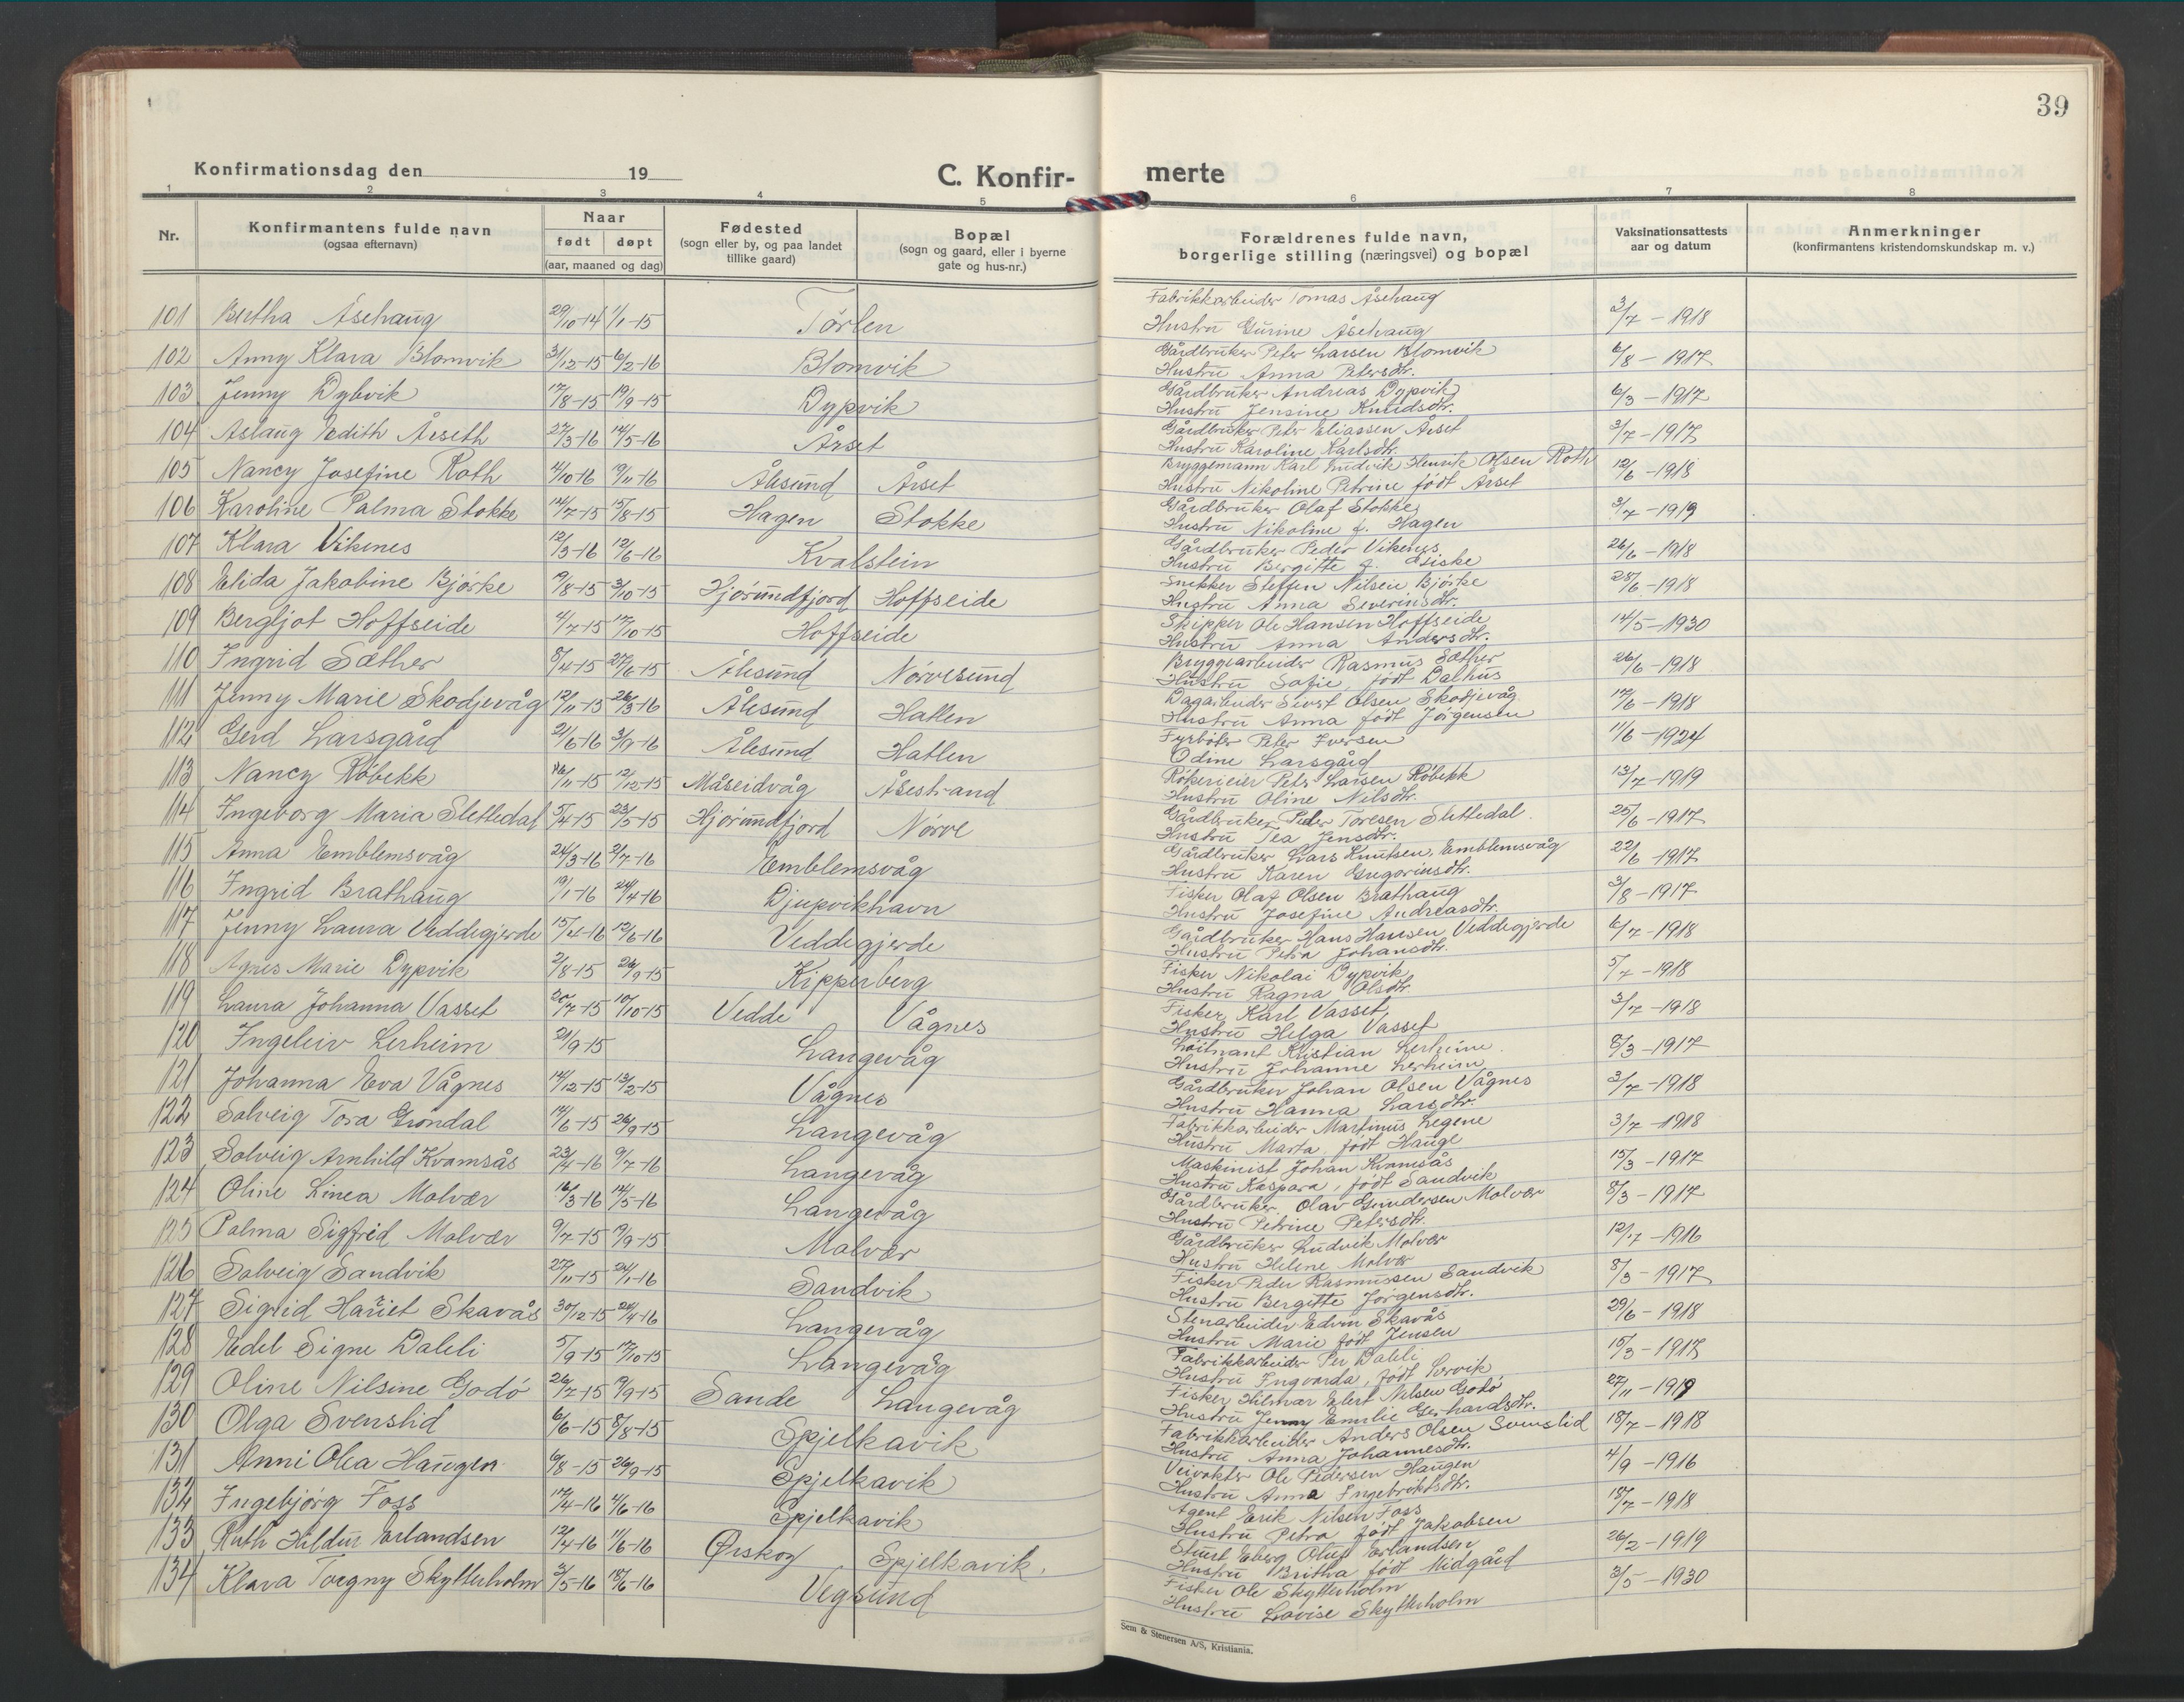 39
Konfirmationsdag den 19
C. Konfir- merte
1 2 3 4 5 6 7 8
Nr.
Konfirmantens fulde navn
(ogsaa efternavn)
Naar
født døpt
(aar, maaned og dag)
Fødested
(sogn eller by, og paa landet
tillike gaard)
Bopæl
(sogn og gaard, eller i byerne
gate og hus-nr.)
Forældrenes fulde navn,
borgerlige stilling (næringsvei) og bopæl
Vaksinationsattests
aar og datum
Anmerkninger
(konfirmantens kristendomskundskap m. v.)
101 Bertha Åsehaug 29/10-14 1/1-15 Tørlen Fabrikkarbeider Tomas Åsehaug 3/7-1918
Hustru Gurine Åsehaug
102 Anny Klara Blomvik 31/12-15 6/2-16 Blomvik Gårdbruker Peter Larsen Blomvik 6/8-1917
Hustru Anna Petersdtr.
103 Jenny Dybvik 17/8-15 19/9-15 Dypvik Gårdbruker Andreas Dypvik 6/3-1917
Hustru Jensine Knudsdtr.
104 Aslaug Edith Årseth 27/3-16 14/5-16 Årset Gårdbruker Peter Eliassen Årset 3/7-1917
Hustru Karoline Karlsdtr.
105 Nancy Josefine Roth 4/10-16 19/11-16 Ålesund Årset Bryggemann Karl Ludvik Henrik Olsen Roth 12/6-1918
Hustru Nikoline Petrine født Årset
106 Karoline Palma Stokke 14/7-15 15/8-15 Hagen Stokke Gårdbruker Olaf Stokke 3/7-1919
Hustru Nikoline f. Hagen
107 Klara Vikenes 12/3-16 12/6-16 Kvalstein Gårdbruker Peder Vikenes 26/6-1918
Hustru Bergitte f. Giske
108 Elida Jakobine Bjørke 19/8-15 3/10-15 Hjørundfjord Hoffseide Snikker Steffen Nilsen Bjørke 28/6-1918
Hustru Anna Severinsdtr.
109 Bergljot Hoffseide 4/7-15 17/10-15 Hoffseide Skipper Ole Hansen Hoffseide 14/5-1930
Hustru Anna Andersdtr.
110 Ingrid Sæther 8/4-15 27/6-15 Ålesund Nørvesund Bryggearbeider Rasmus Sæther 26/6-1918
Hustru Sofie, født Dalhus
111 Jenny Marie Skodjevåg 12/11-15 26/3-16 Ålesund Hatlen Dagarbeider Sivert Olsen Skodjevåg 17/6-1918
Hustru Anna født Jørgensen
112 Gerd Larsgård 21/6-16 3/9-16 Ålesund Hatlen Fyrbøter Peter Iversen 11/6-1924
Odine Larsgård
113 Nancy Røbekk 16/11-15 12/12-15 Måseidvåg Åsestrand Røkerieier Peter Larsen Røbekk 13/7-1919
Hustru Oline Nilsdtr.
114 Ingeborg Maria Slettedal 5/4-15 23/5-15 Hjørundfjord Nørve Gårdbruker Peder Toresen Slettedal 25/6-1917
Hustru Tea Jensdtr.
115 Anna Emblemsvåg 24/3-16 2/7-16 Emblemsvåg Gårdbruker Lars Knutsen Emblemsvåg 22/6-1917
Hustru Karen Gregoriusdtr.
116 Ingrid Brathaug 19/1-16 24/4-16 Djupvikhavn Fisker Olaf Olsen Brathaug 3/8-1917
Hustru Josefine Andreasdtr.
117 Jenny Laura Veddegjerde 15/4-16 12/6-16 Veddegjerde Gårdbruker Hans Hansen Veddegjerde 6/7-1918
Hustru Petra Johansdtr.
118 Agnes Marie Dypvik 2/8-15 26/9-15 Kipperberg Fisker Nikolai Dypvik 5/7-1918
Hustru Ragna Olsdtr.
119 Laura Johanna Vasset 20/7-15 10/10-15 Vedde Vågnes Fisker Karl Vasset 3/7-1918
Hustru Helga Vasset
120 Ingeleiv Lerheim 21/9-15 Langevåg Løitnant Kristian Lerheim 8/3-1917
Hustru Johanne Lerheim
121 Johanna Eva Vågnes 14/12-15 13/2-15 Vågnes Gårdbruker Johan Olsen Vågnes 3/7-1918
Hustru Hanna Larsdtr.
122 Solveig Tora Grøndal 14/6-15 26/9-15 Langevåg Fabrikkarbeider Martinus Legene 3/7-1918
Hustru Marta, født Hauge
123 Solveig Arnhild Kvamsås 23/4-16 9/7-16 Langevåg Maskinist Johan Kvamsås 15/3-1917
Hustru Kaspara, født Sandvik
124 Oline Linea Molvær 16/3-16 14/5-16 Langevåg Gårdbruker Olav Gundersen Molvær 8/3-1917
Hustru Petrine Petersdtr.
125 Palma Sigfrid Molvær 9/7-15 19/9-15 Molvær Gårdbruker Ludvik Molvær 12/7-1916
Hustru Helene Molvær
126 Solveig Sandvik 27/11-15 24/1-16 Sandvik Fisker Peder Rasmussen Sandvik 8/3-1917
Hustru Bergitte Jørgensdtr.
127 Sigrid Hariet Skavås 30/12-15 24/4-16 Langevåg Stenarbeider Edvin Skavås 29/6-1918
Hustru Marie født Jensen
128 Edel Signe Daleli 5/9-15 17/10-15 Langevåg Fabrikkarbeider Per Daleli 15/3-1917
Hustru Ingvarda, født Lervik
129 Oline Nilsine Godø 26/7-15 19/9-15 Sande Langevåg Fisker Hilmar Elert Nilsen Godø 27/11-1919
Hustru Jenny Emilie Gerhardsdtr.
130 Olga Svenslid 6/6-15 8/8-15 Spjelkavik Fabrikkarbeider Anders Olsen Svenslid 18/7-1918
Hustru Anna Johannesdtr.
131 Anni Olea Haugen 6/8-15 26/9-15 Spjelkavik Veivokter Ole Pedersen Haugen 4/9-1916
Hustru Anna Ingebriktsdtr.
132 Ingebjørg Foss 17/4-16 4/6-16 Spjelkavik Agent Erik Nilsen Foss 18/7-1918
Hustru Petra født Jakobsen
133 Ruth Hildur Erlandsen 12/4-16 11/6-16 Ørskog Spjelkavik. Oluf Erlandsen 26/2-1919
Hustru Britha født Midgård
134 Klara Torgny Skytterholm 3/5-16 18/6-16 Vegsund Fisker Ole Skytterholm 3/5-1930
Hustru Lovise Skytterholm
Sem & Stenersen A/S, Kristiania.